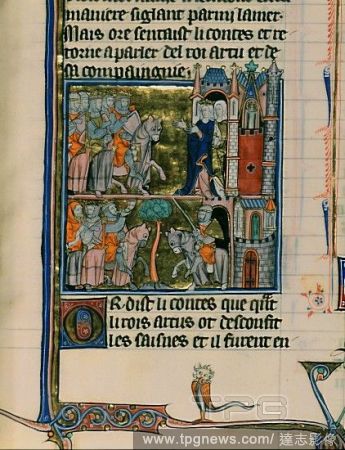 maniere siglant parmi lamer.
Mais ore sentaist li contes et re
torne a parler del roi artu et de
sa compaingnie;
OR dist li contes que qnt
li rois artus ot desconfit
les saisnes et il furent en
TPG
www.tpgnews.com / 達志影像